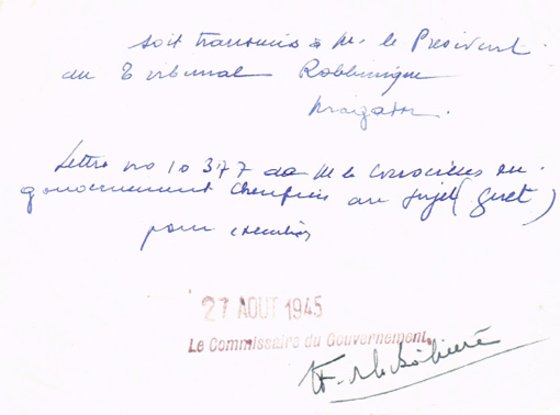 soit transmis à M. le Président
du Tribunal Rabbinique
Mazagan.
Lettre no 10377 de M. le Conseiller du
gouvernement Chérifien au sujet (Guet)
pour exécution
27 AOUT 1945
Le Commissaire du Gouvernement,